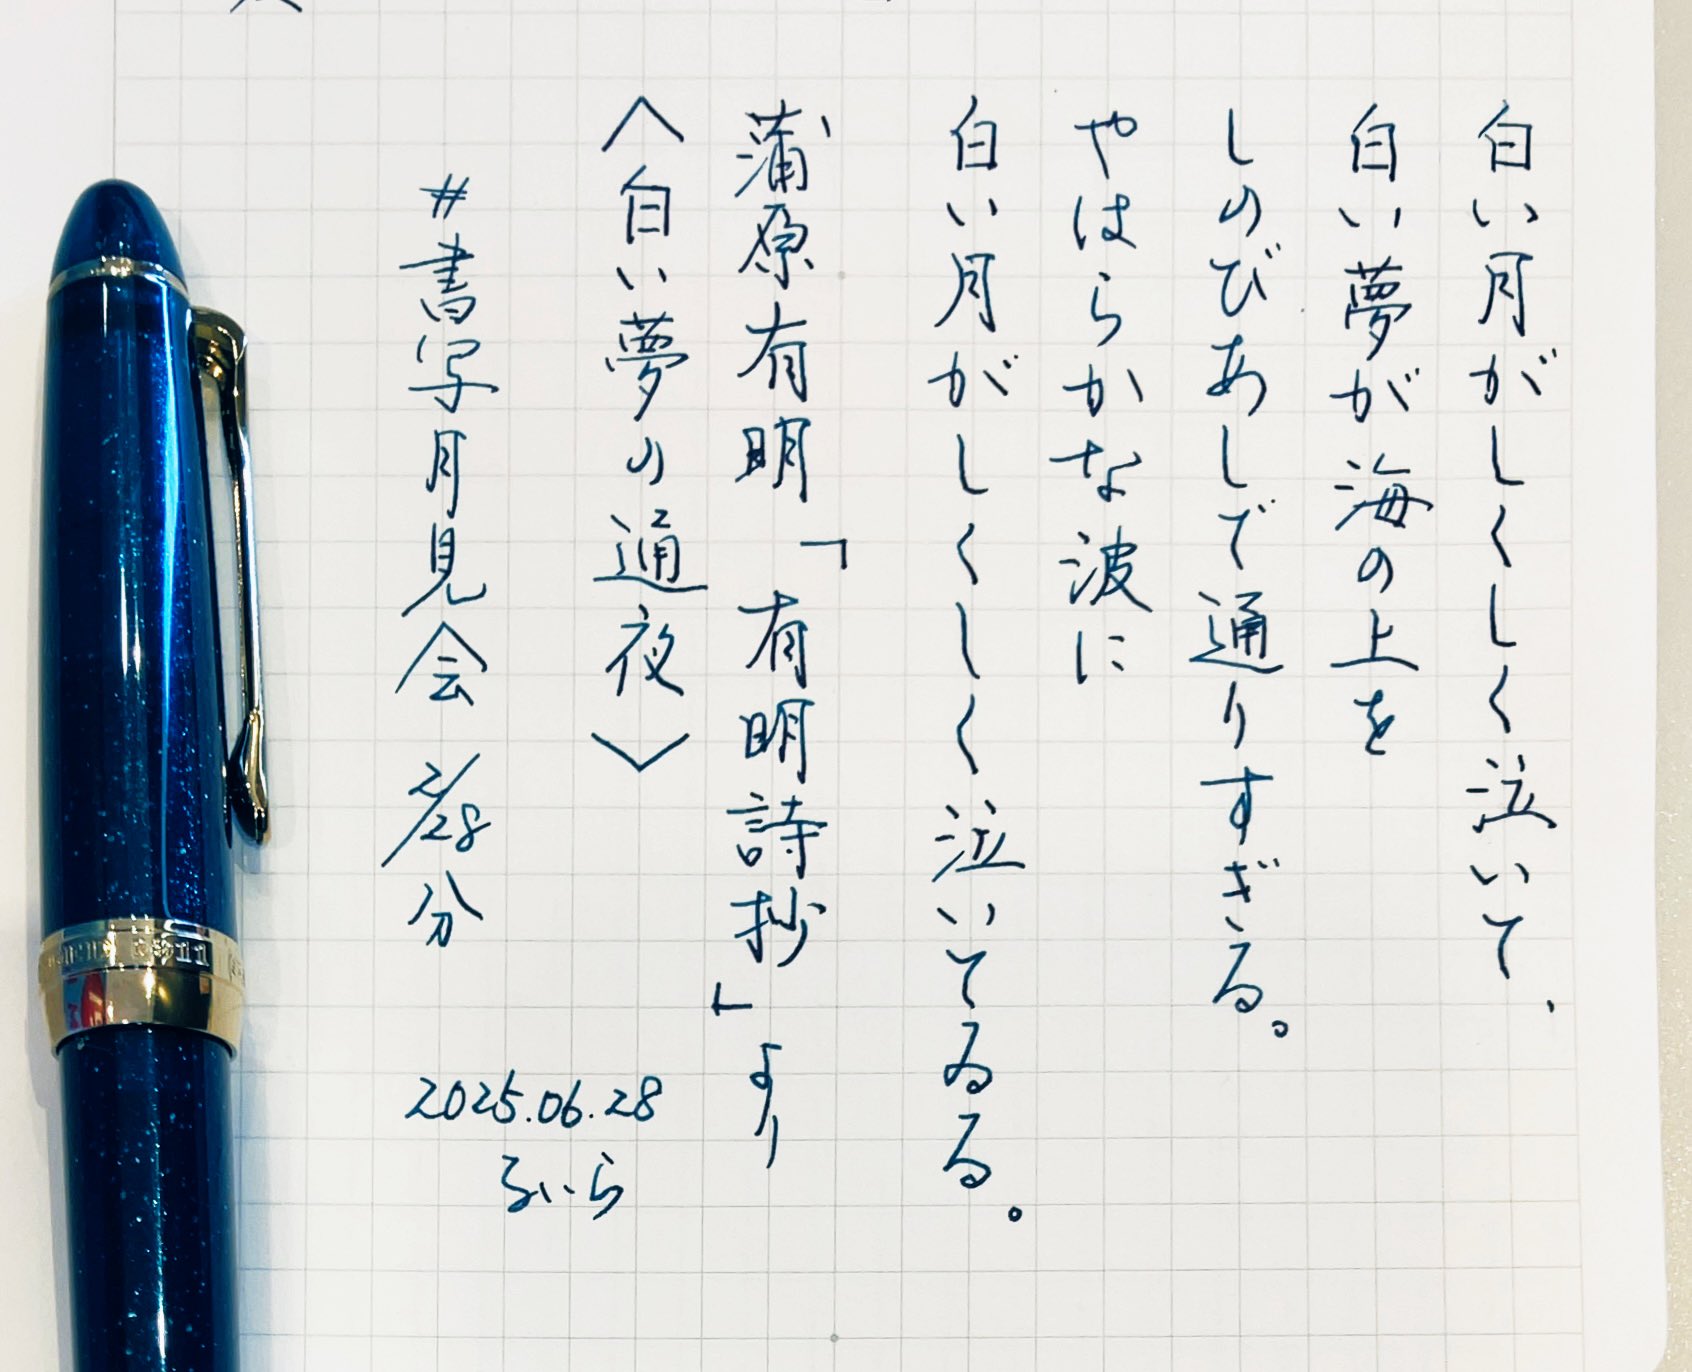 白い月がしくしく泣いて、
白い夢が海の上を
しのびあしで通りすぎる。
やはらかな波に
白い月がしくしく泣いてゐる。
蒲原有明「有明詩抄」より
〈白い夢の通夜〉
#書写月見会 2/28分
2025.06.28
るいら